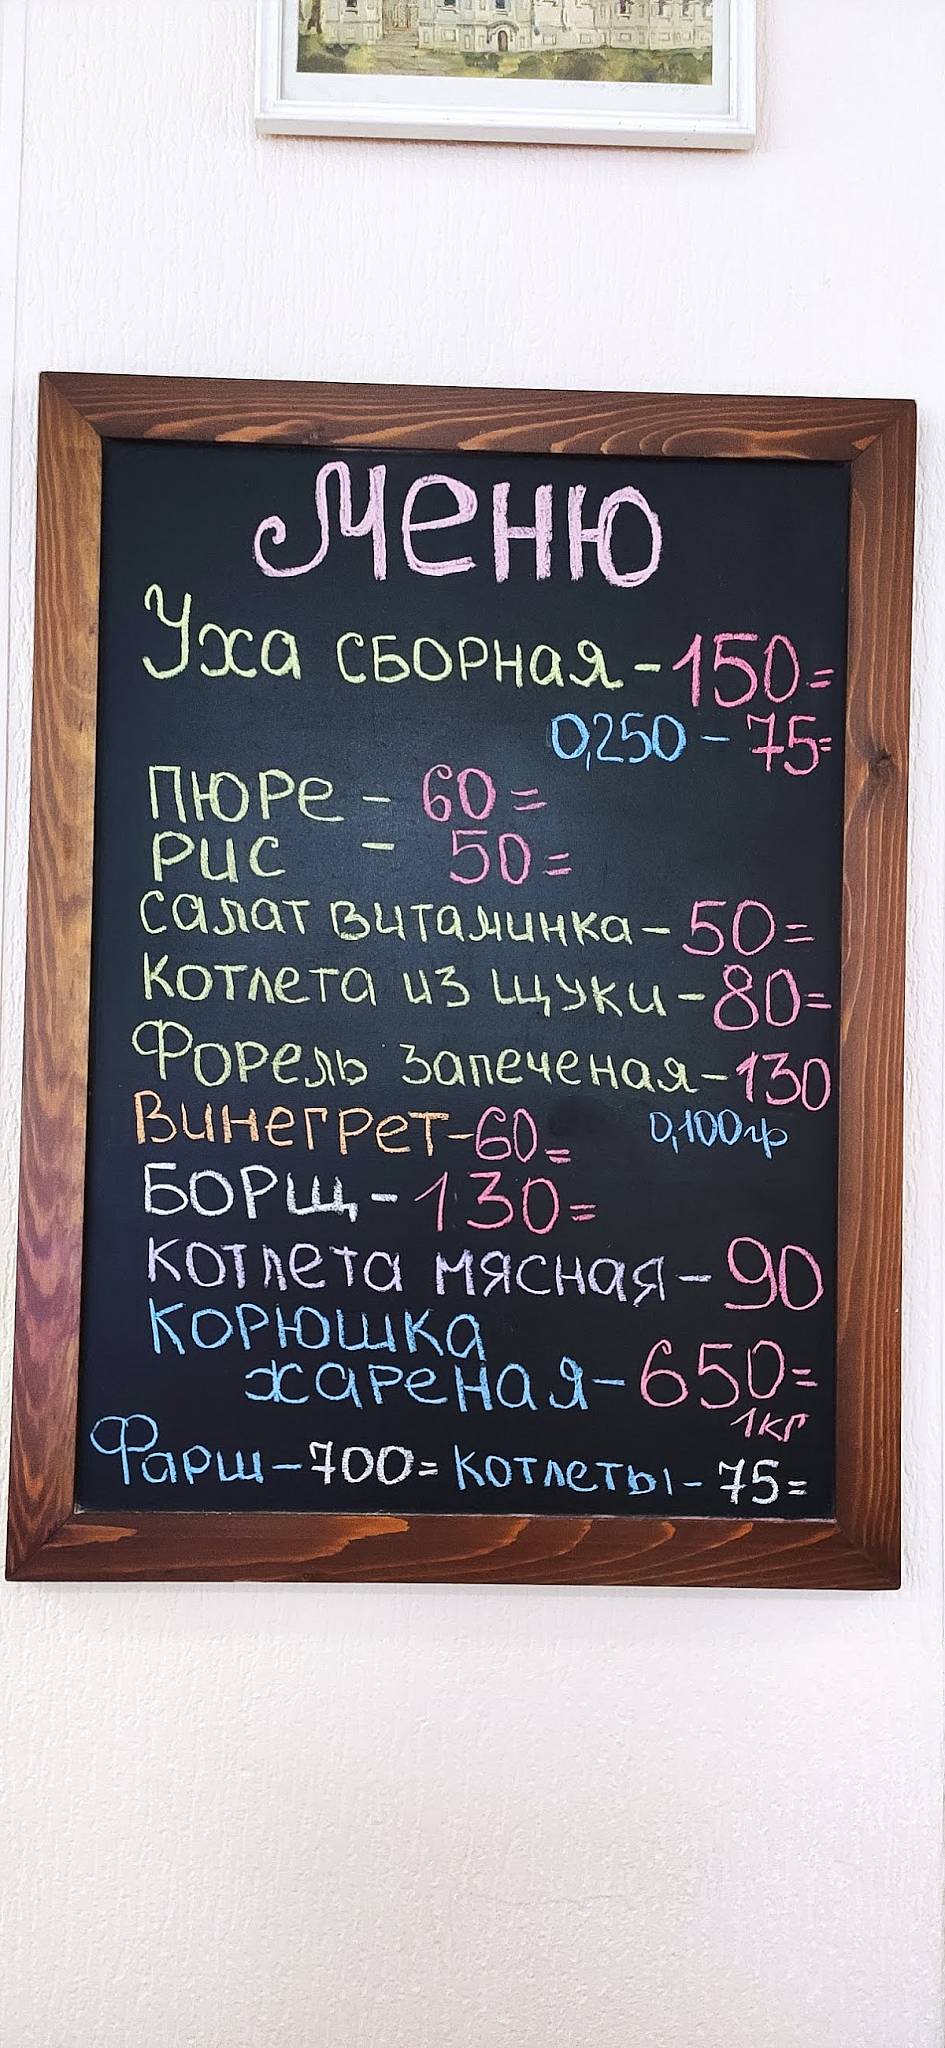 Меню
Уха сборная - 150=
0,250 - 75=
Пюре - 60=
Рис - 50=
Салат витаминка - 50=
Котлета из щуки - 80=
Форель запеченая - 130
0,100гр
Винегрет - 60=
Борщ - 130=
Котлета мясная - 90
Корюшка
жареная - 650=
1кг
Фарш - 700= Котлеты - 75=